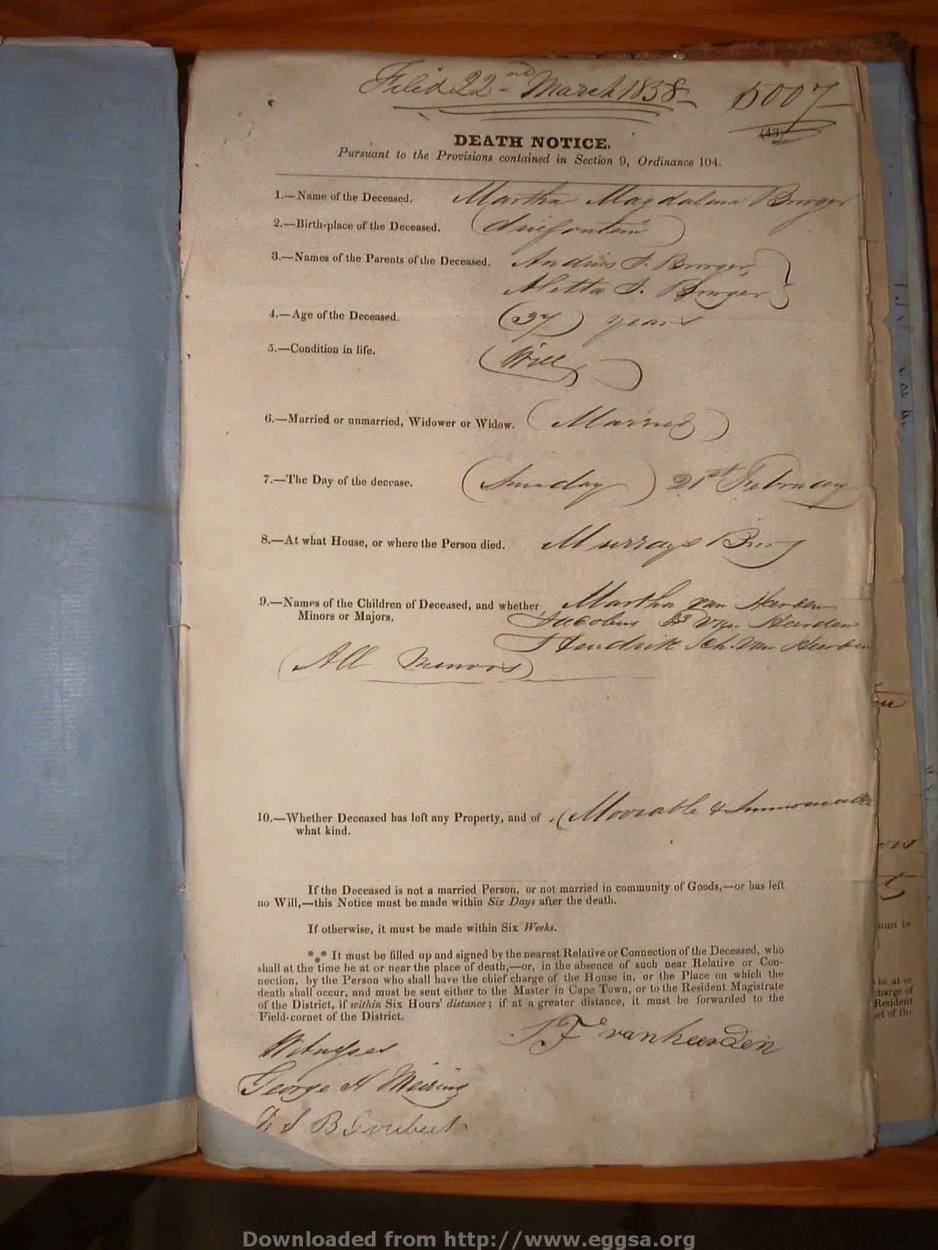 Filed 22nd March 1858
5007
(43)
DEATH NOTICE.
Pursuant to the Provisions contained in Section 9, Ordinance 104.
1.—Name of the Deceased. Martha Magdalena Burger
2.—Birth-place of the Deceased.
3.—Names of the Parents of the Deceased. Andries F. Burger,
Aletta S. Burger
4.—Age of the Deceased. (37) years
5.—Condition in life.
6.—Married or unmarried, Widower or Widow. (Married)
7.—The Day of the decease. (Sunday) 21st February
8.—At what House, or where the Person died. Murrays Burg
9.—Names of the Children of Deceased, and whether Martha van Heerden
Minors or Majors. Jacobus van Heerden
Hendrik Sch. van Heerden
(All Minors)
10.—Whether Deceased has left any Property, and of (Moveable & Immoveable
what kind.
If the Deceased is not a married Person, or not married in community of Goods,—or has left
no Will,—this Notice must be made within Six Days after the death.
If otherwise, it must be made within Six Weeks.
*** It must be filled up and signed by the nearest Relative or Connection of the Deceased, who
shall at the time be at or near the place of death,—or, in the absence of such near Relative or Con-
nection, by the Person who shall have the chief charge of the House in, or the Place on which the
death shall occur, and must be sent either to the Master in Cape Town, or to the Resident Magistrate
of the District, if within Six Hours' distance; if at a greater distance, it must be forwarded to the
Field-cornet of the District.
van heerden
Witnesses
George H Meiring
B Joubert
must be
be at or
charge of
Resident
et of the
Downloaded from http://www.eggsa.org